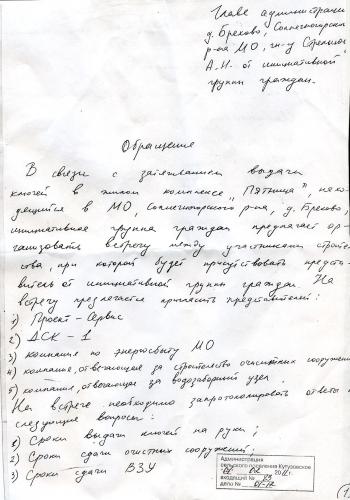 Главе администрации
д. Брехово, Солнечногорского
р-на МО, гн-у
А.И. от инициативной
группы граждан.
Обращение
В связи с затягиванием выдачи
ключей в жилом комплексе "Пятница", нахо-
дящимся в МО, Солнечногорский р-на, д. Брехово,
инициативная группа граждан предлагает ор-
ганизовать встречу между участниками строите-
ства, при которой будет присутствовать предста-
витель от инициативной группы граждан. На
встречу предлагается пригласить представителей:
1) Проект-Сервис
2) ДСК-1
3) компания по энергосбыту МО
4) компания, отвечающая за строительство очистных сооружений
5) компания, отвечающая за водозаборный узел
На встрече необходимо запротоколировать ответы на
следующие вопросы:
1) Сроки выдачи ключей на руки;
2) Сроки сдачи очистных сооружений;
3) Сроки сдачи ВЗУ
Администрация
сельского поселения Кутузовское
входящий №
дело №